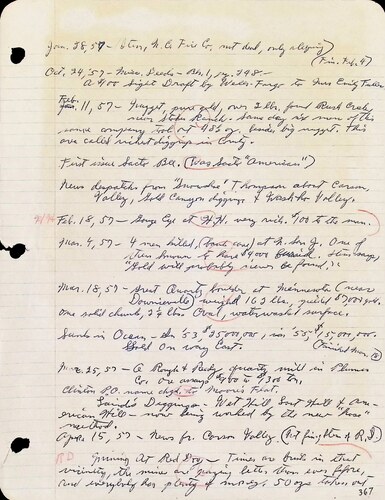 Jan. 28, 57 - Stre, N.C. Fire Co. not dead, only sleeping)
(Fin. Feb. 4)
Oct. 24, '57 - Misc. Deeds - Bk. 1, pg. 248 -
A $400 Sight Draft by Wells-Fargo to Mrs Emily
Feb. 11, 57 - Nugget, pure gold, over 2 lbs. found Rush Creek,
near Ranch. Same day six men of this
same company took out 98 oz. besides big nugget. This
are called richest diggings in County.
First issue Sacto Bee. (Was Sact. "American")
News despatch from "Snowshoe" Thompson about Carson
Valley, Gold Canyon diggings & Washoe Valley.
Feb. 18, 57 - Gouge Eye at N.H. very rich. $100 to the man.
Mar. 4, 57 - 4 men killed, (bank cave) at N. San J. One of
them known to have $9000 buried. Item says,
"Gold will probably never be found."
Mar. 18, 57 - Great Quartz boulder at Minnesota (near
Downieville) weighs 162 lbs, yield
One solid chunk, 2¼ lbs Oval, waterwashed surface.
Sunk in Ocean - In '53 $25,000,000, in '55, $15,000,000.
Gold On way East.
Mar. 25, 57 - A Rough & Ready quartz mill in Plumas
Co. ore assays to $300 ton.
Clinton P.O. name chgd. to Moore's Flat.
Sailor's Diggings - Wet Hill, East Hill & Am-
erican Hill - now being worked by the new "hose"
method.
Apr. 15, 57 - News fr. Carson Valley.
R.D. Mining At Red Dog - Times are brisk in that
vicinity, the mines are paying better than ever before,
and everybody has plenty of money. 50 ozs taken out
367